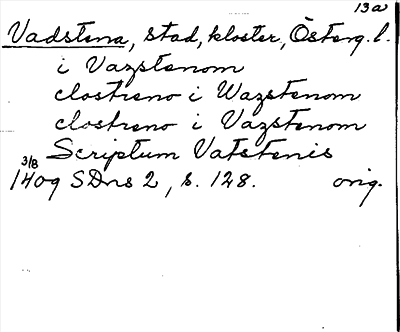 13a
Vadstena, stad, kloster, Österg. l.
i Vazstenom
clostreno i Wazstenom
clostreno i Vazstenom
Scriptum Vatstenis
3/8
1409 SDns 2, s. 128. orig.